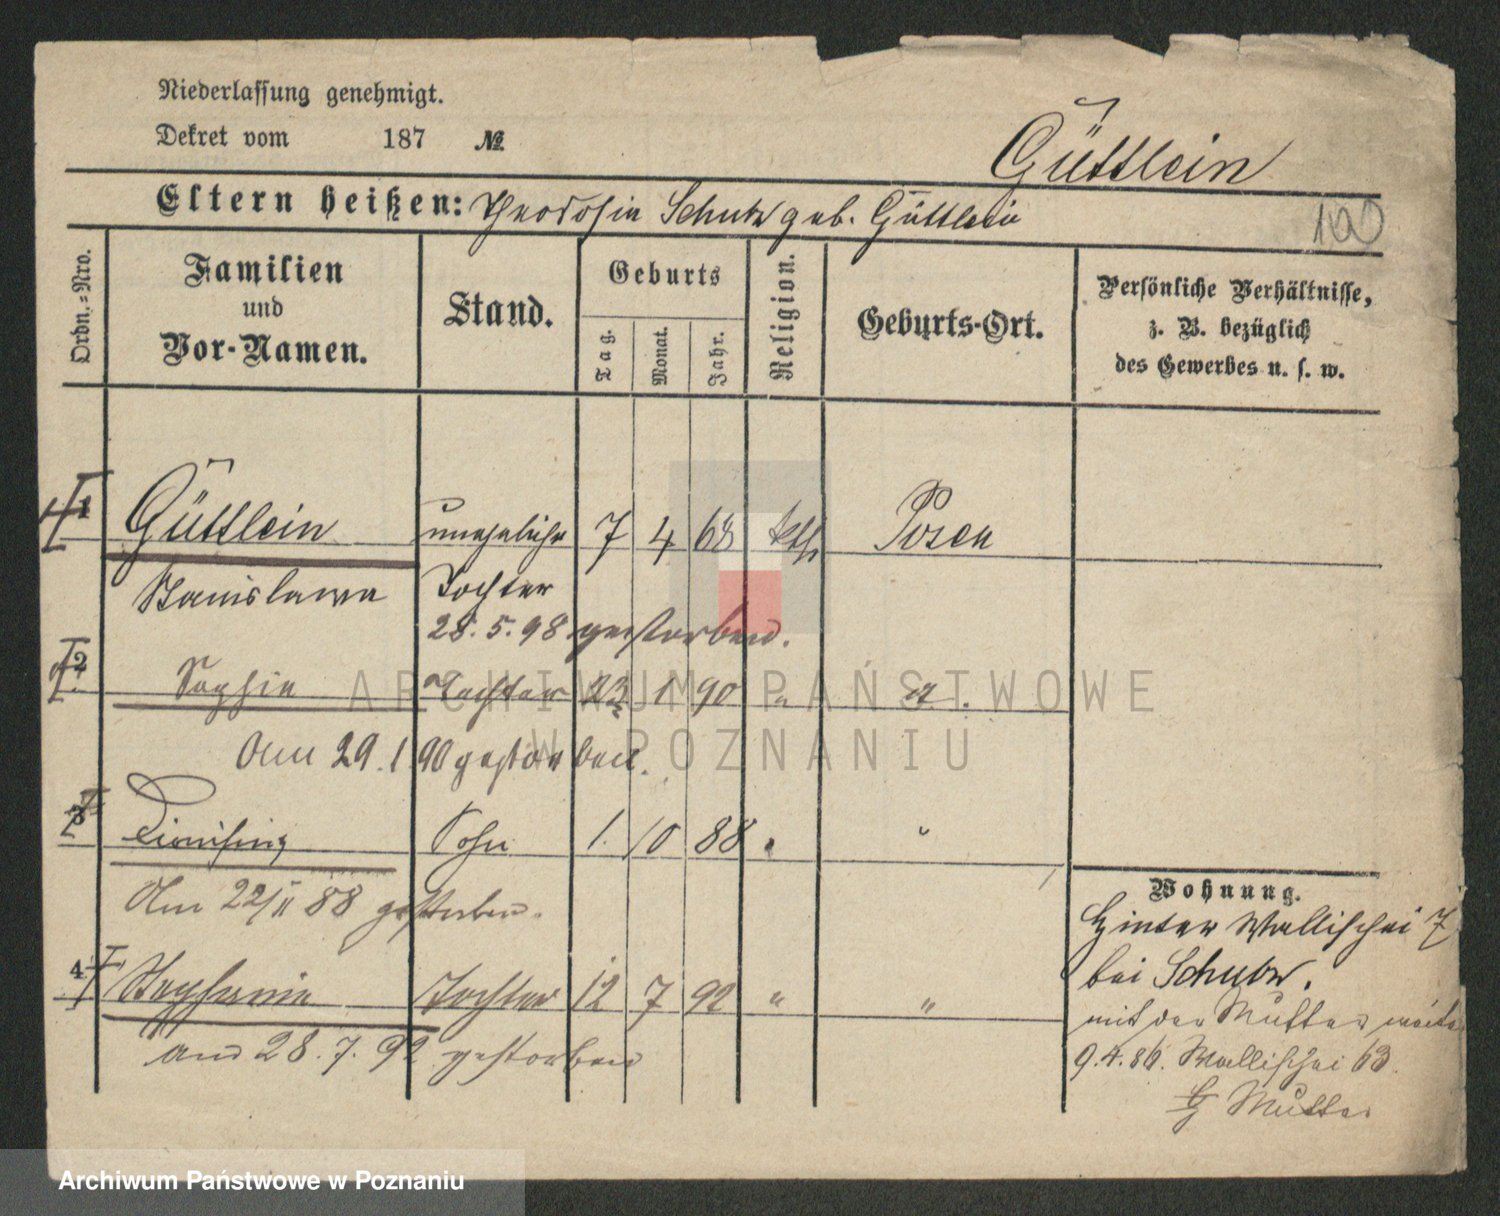 Niederlassung genehmigt.
Dekret vom 187 №
Güttlein
Eltern heißen: Theodosia Schubz geb. Güttlein
100
Ordn.-Nro.
Familien und Vor-Namen.
Stand.
Geburts
Tag.
Monat.
Jahr.
Religion.
Geburts-Ort.
Persönliche Verhältnisse,
z. B. bezüglich
des Gewerbes u. s. w.
1 Güttlein uneheliche 7 4 68 kth Posen
Stanislawa Tochter
28. 5. 98 gestorben.
2 Sophie Tochter 23 1 90 " "
Am 29. 1. 90 gestorben.
3 Dionisius Sohn 1. 10 88 " "
Am 22/II 88 gestorben.
4 Stephanie Tochter 12 7 92 " "
am 28. 7. 92 gestorben
Wohnung.
Hinter Wallischei 7
bei Schubz.
mit der Mutter
9. 4. 86. Wallischei 63.
Mutter
ARCHIWUM PAŃSTWOWE
W POZNANIU
Archiwum Państwowe w Poznaniu